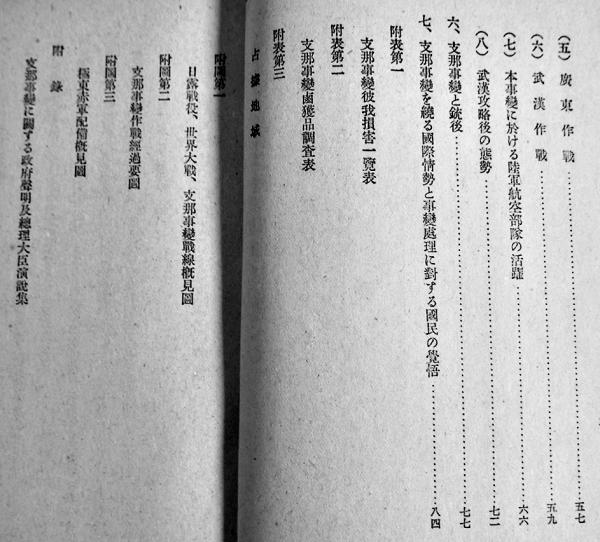 （五）廣東作戰…………五七
（六）武漢作戰…………五九
（七）本事變に於ける陸軍航空部隊の活躍…………六六
（八）武漢攻略後の態勢…………七二
六、支那事變と銃後…………七七
七、支那事變を繞る國際情勢と事變處理に對する國民の覺悟…………八四
附表第一
支那事變彼我損害一覽表
附表第二
支那事變鹵獲品調査表
附表第三
占據地域
附圖第一
日露戰役、世界大戰、支那事變戰線槪見圖
附圖第二
支那事變作戰經過要圖
附圖第三
極東赤軍配備槪見圖
附錄
支那事變に關する政府聲明及總理大臣演說集